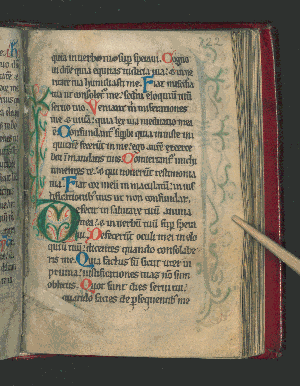 quia in verbo tuo sup speraui. Cognoui
dñe quia equitas iudicia tua: & in ueritate
tua humiliasti me. Fiat misericordia
tua ut consoletur me: sedm eloquiũ tuũ
seruo tuo. Veniant m miserationes
tue & uiuã: quia lex tua meditatio mea
ẽ. Confundant supbi quia iniuste iniquitatẽ
fecerunt in me: ego autẽ exercebor
in mandatis tuis. Conuertant m timentes
te: & qui nouerunt testimonia
tua. Fiat cor meũ in maculatũ: in iustificationib
tuis ut non confundar.
Defecit in salutare tuũ anima
mea: & in uerbũ tuũ sup speraui.
Defecerunt oculi mei in eloquiũ
tuũ: dicentes quando consolaberis
me. Quia factus sũ sicut uter in
pruina: iustificationes tuas non sum
oblitus. Quot sunt dies serui tui:
quando facies de psequentib me